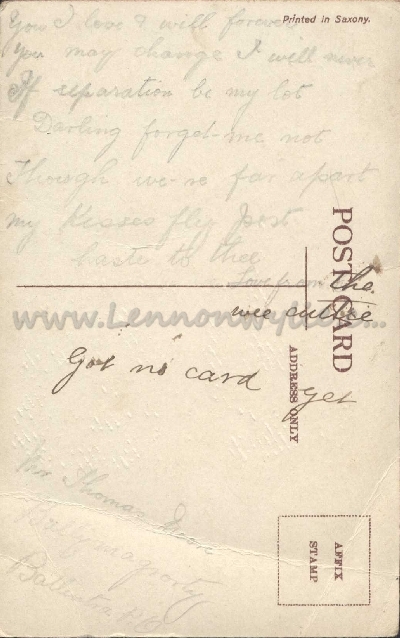 Printed in Saxony.
You I love & will forever
You may change I will never
If separation be my lot
Darling forget-me not
Through we-re far apart
my Kisses fly post
haste to thee
Love from the
wee cuttie
www.Lennonwylie...
Got no card yet
POST CARD
ADDRESS ONLY
Mr Thomas
Ballantra
AFFIX
STAMP